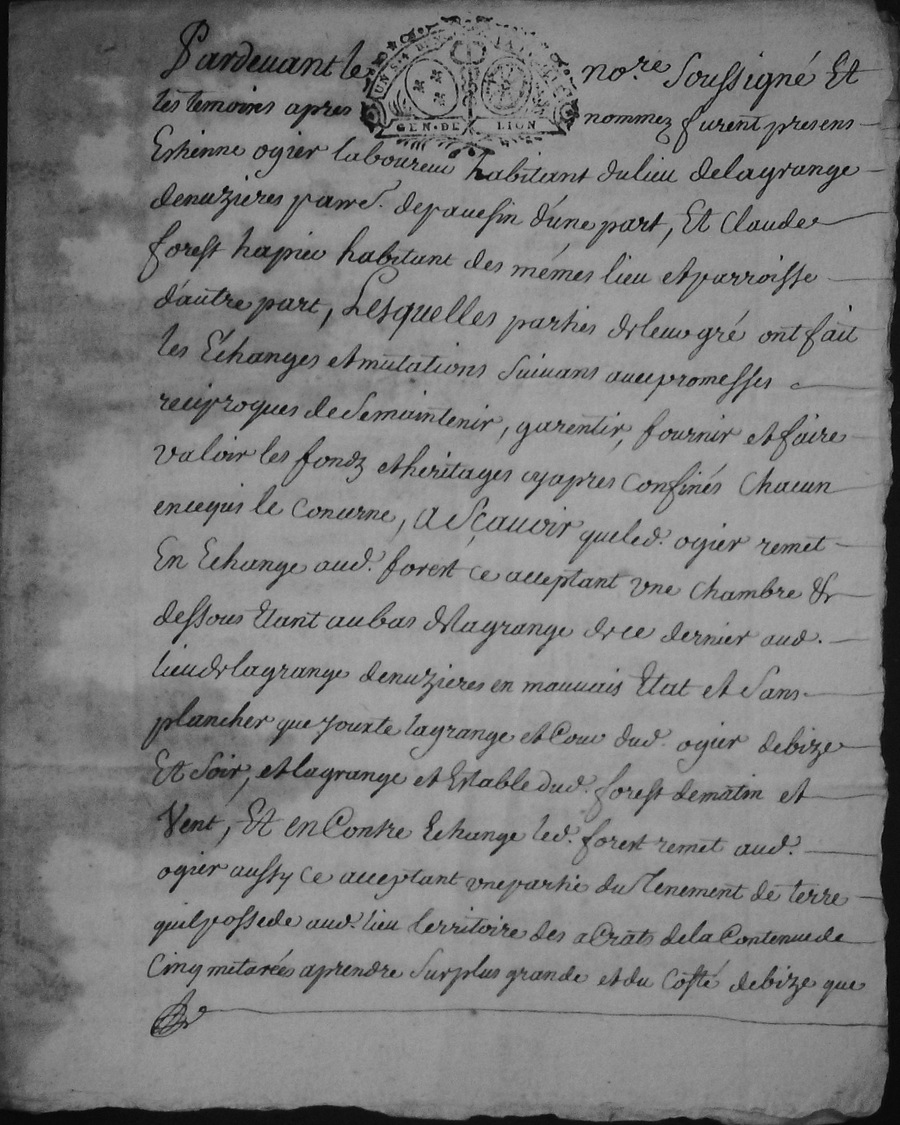 Pardevant le no.re soussigné Et
les temoins apres nommez furent presens
Estienne ogier laboureur habitant du lieu delagrange
denuzieres parroi.s depavesin d'une part, Et Claude
forest hapier habitant des mémes lieu et parroisse
d'autre part, Lesquelles parties de leur gré ont fait
les Echanges et mutations suivans avec promesses
reciproques de se maintenir, garentir, fournir et faire
valoir les fondz et heritages cy apres confinés chacun
en ce qui le concerne, a Sçavoir que led. ogier remet
En Echange aud. forest ce acceptant vne chambre de
dessous Etant au bas de la grange de ce dernier aud.
lieu de lagrange denuzieres en mauvais Etat et sans
plancher que jouxte la grange et Cour dud. ogier debize
Et soir, et la grange et Estable dud. forest de matin et
Vent, Et en Contre Echange led. forest remet aud.
ogier aussy ce acceptant vne partie du Tenement de terre
quil possede aud. lieu territoire des a Crats de la Contenue de
Cinq mitarées a prendre sur plus grande et du Costé debize que